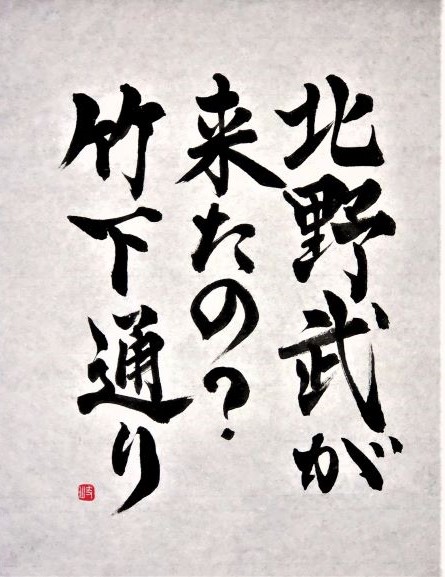 北野武が
来たの?
竹下通り